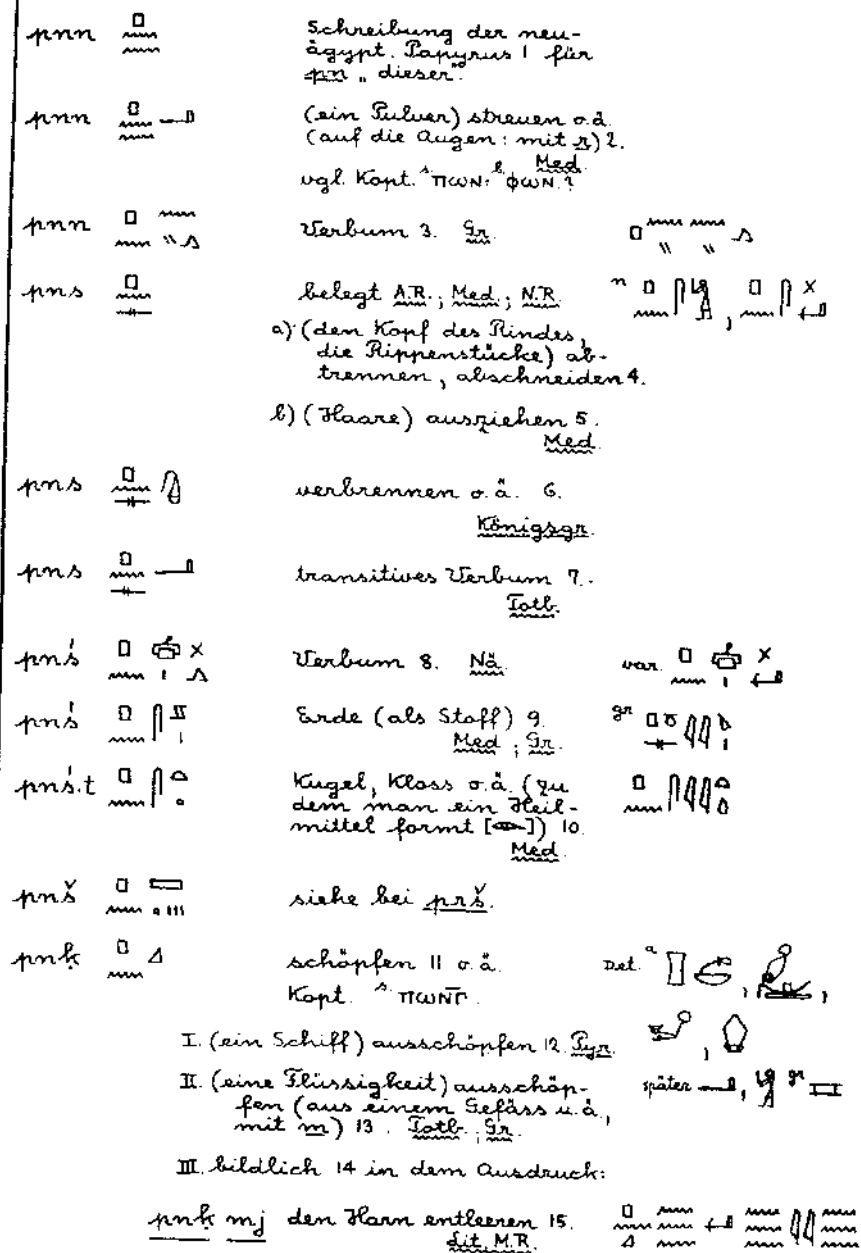 pnn Schreibung der neu-
ägypt. Papyrus 1 für
pn „dieser“.
pnn (ein Pulver) streuen o. ä.
(auf die Augen: mit r) 2.
Med.
vgl. Kopt. ˢ ⲡⲱⲛ: ᵇ ⲫⲱⲛ. ?
pnn Verbum 3. Gr.
pns belegt A.R.; Med.; N.R. ⁿ
a) (den Kopf des Rindes,
die Rippenstücke) ab-
trennen, abschneiden 4.
b) (Haare) ausziehen 5.
Med.
pns verbrennen o. ä. 6.
Königsgr.
pns transitives Verbum 7.
Totb.
pnś Verbum 8. Nä. var.
pnś Erde (als Stoff) 9. gr
Med.; Gr.
pnś.t Kugel, Kloss o. ä. (zu
dem man ein Heil-
mittel formt [𓁹]) 10.
Med.
pnš siehe bei prš.
pnḳ schöpfen 11 o. ä. Det. ᵃ
Kopt. ˢ ⲡⲱⲛⲅ̄.
I. (ein Schiff) ausschöpfen 12. Pyr.
II. (eine Flüssigkeit) ausschöp- später gr
fen (aus einem Gefäss u. ä.,
mit m) 13. Totb.; Gr.
III. bildlich 14 in dem Ausdruck:
pnḳ mj den Harn entleeren 15.
Lit. M.R.